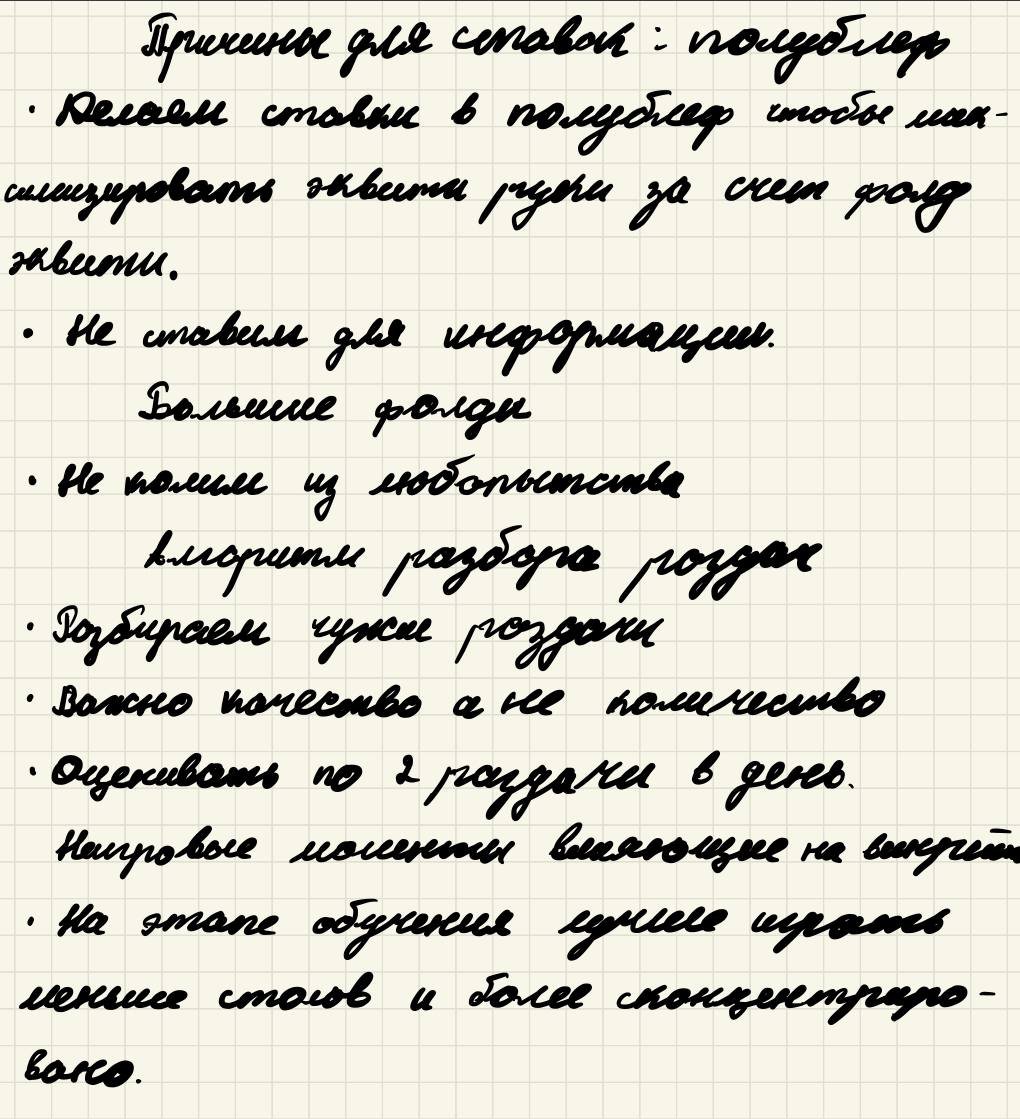 Причины для ставок : полублеф
· Делаем ставки в полублеф чтобы мак-
симизировать эквити руки за счет фолд
эквити.
· Не ставим для информации.
Большие фолды
· Не колим из любопытства
Алгоритм разбора раздач
· Разбираем чужие раздачи
· Важно качество а не количество
· Оценивать по 2 раздачи в день.
Неигровые моменты влияющие на винрейт
· На этапе обучения лучше играть
меньше столов и более сконцентриро-
вано.